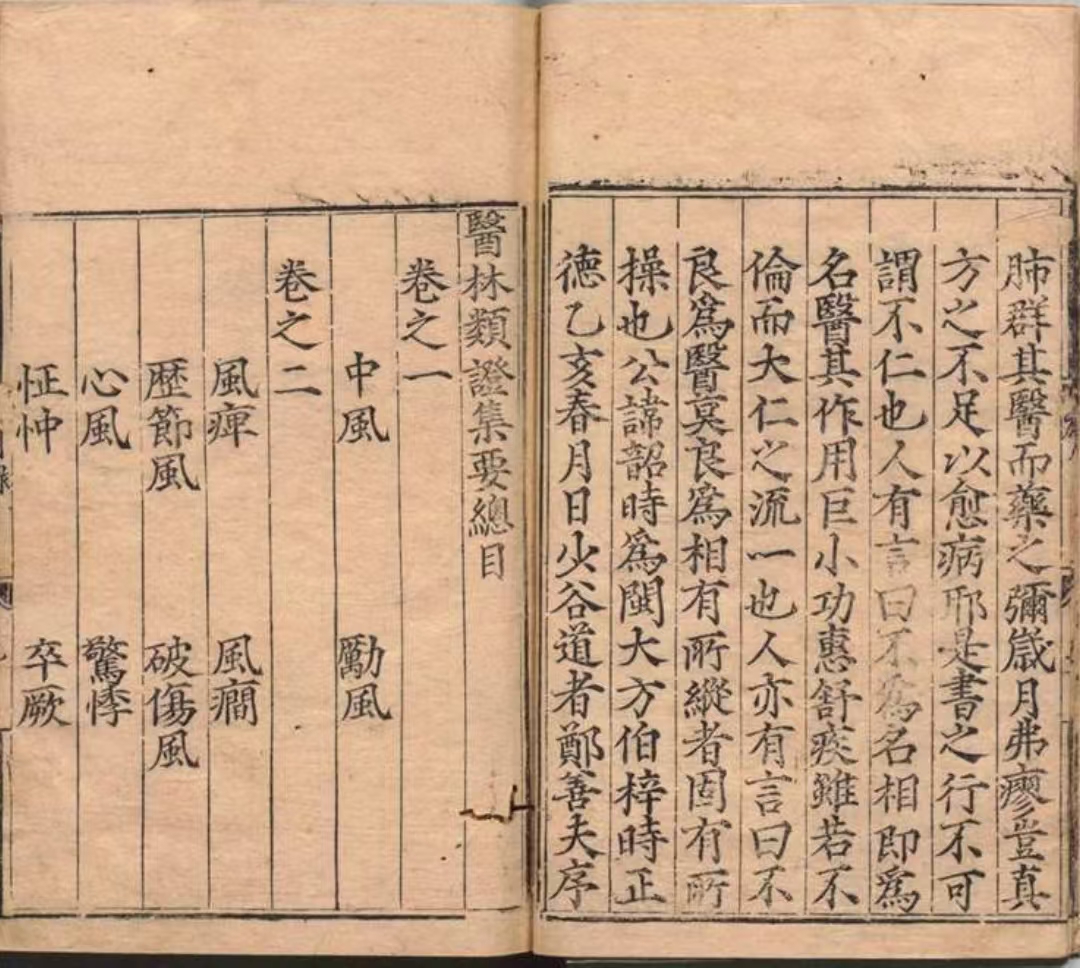 肺群其醫而藥之彌歲月弗瘳豈真
方之不足以愈病耶是書之行不可
謂不仁也人有言曰不為名相即爲
名醫其作用巨小功惠舒疾雖若不
倫而大仁之流一也人亦有言曰不
良爲醫莫良爲相有所縱者固有所
操也公諱韶時爲閩大方伯梓時正
德乙亥春月日少谷道者鄭善夫序
醫林類證集要總目
卷之一
中風 勵風
卷之二
風痺 風癇
歷節風 破傷風
心風 驚悸
怔忡 卒厥